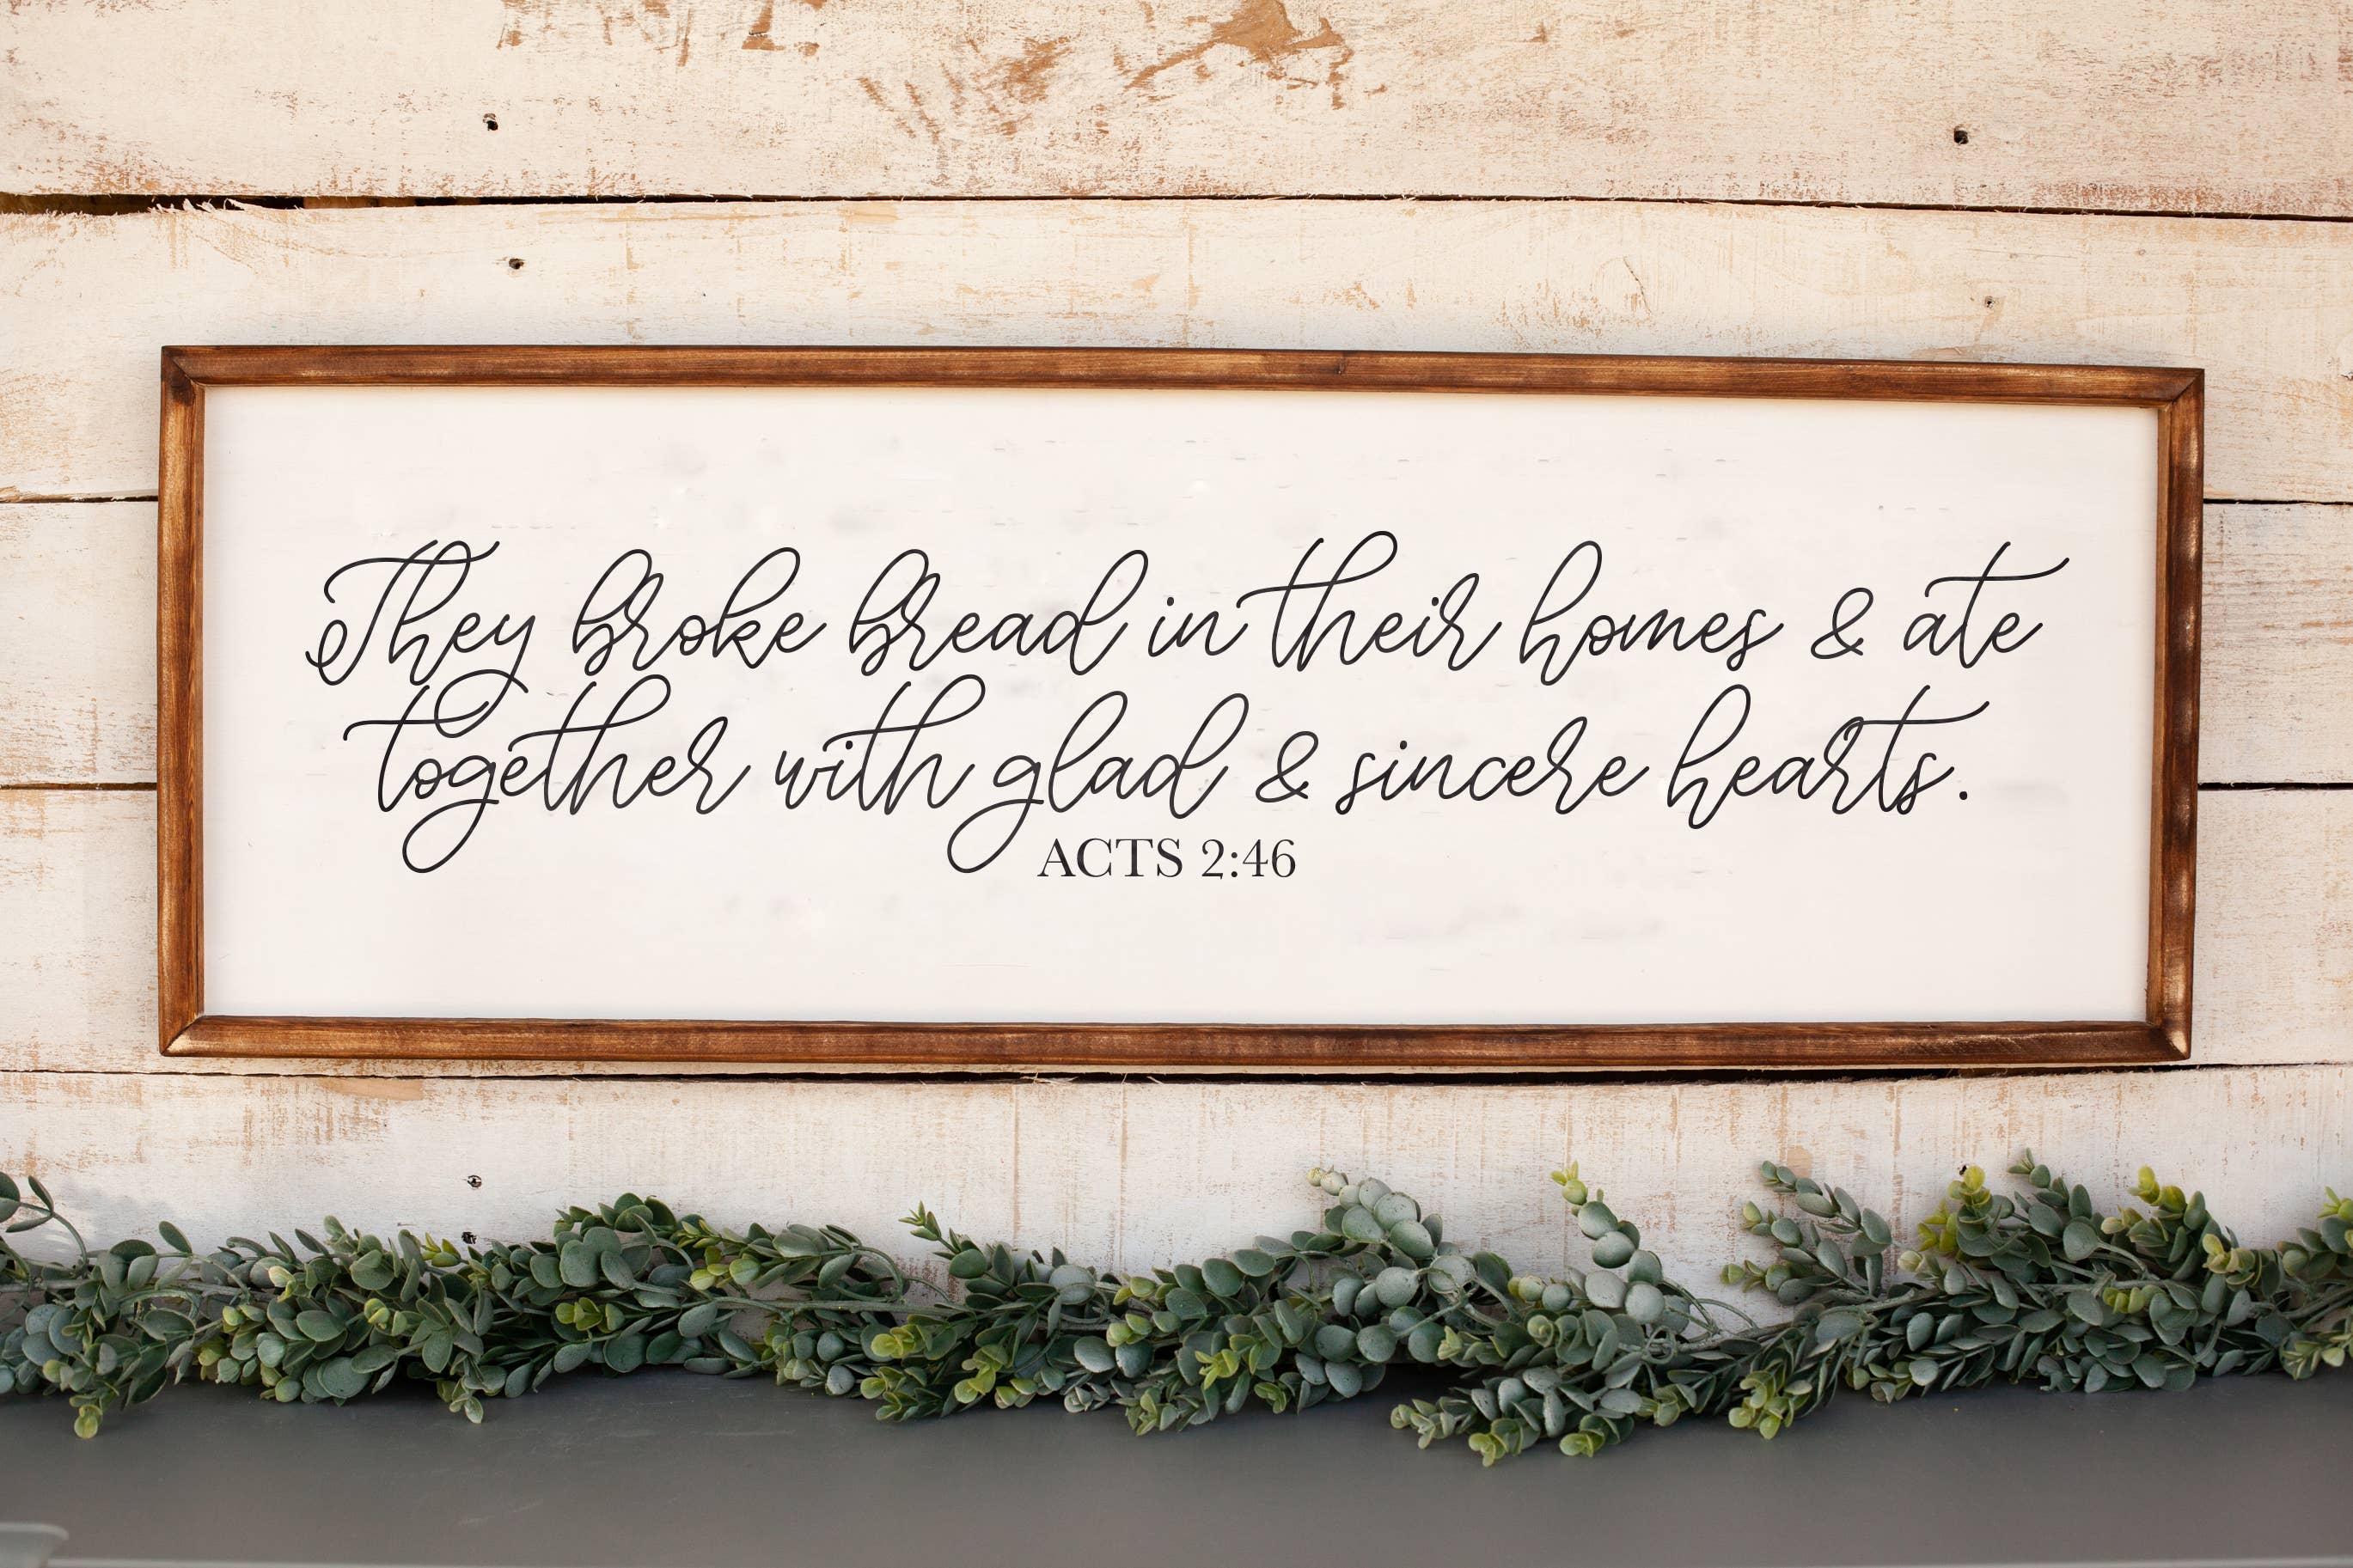 They broke bread in their homes & ate
together with glad & sincere hearts.
ACTS 2:46